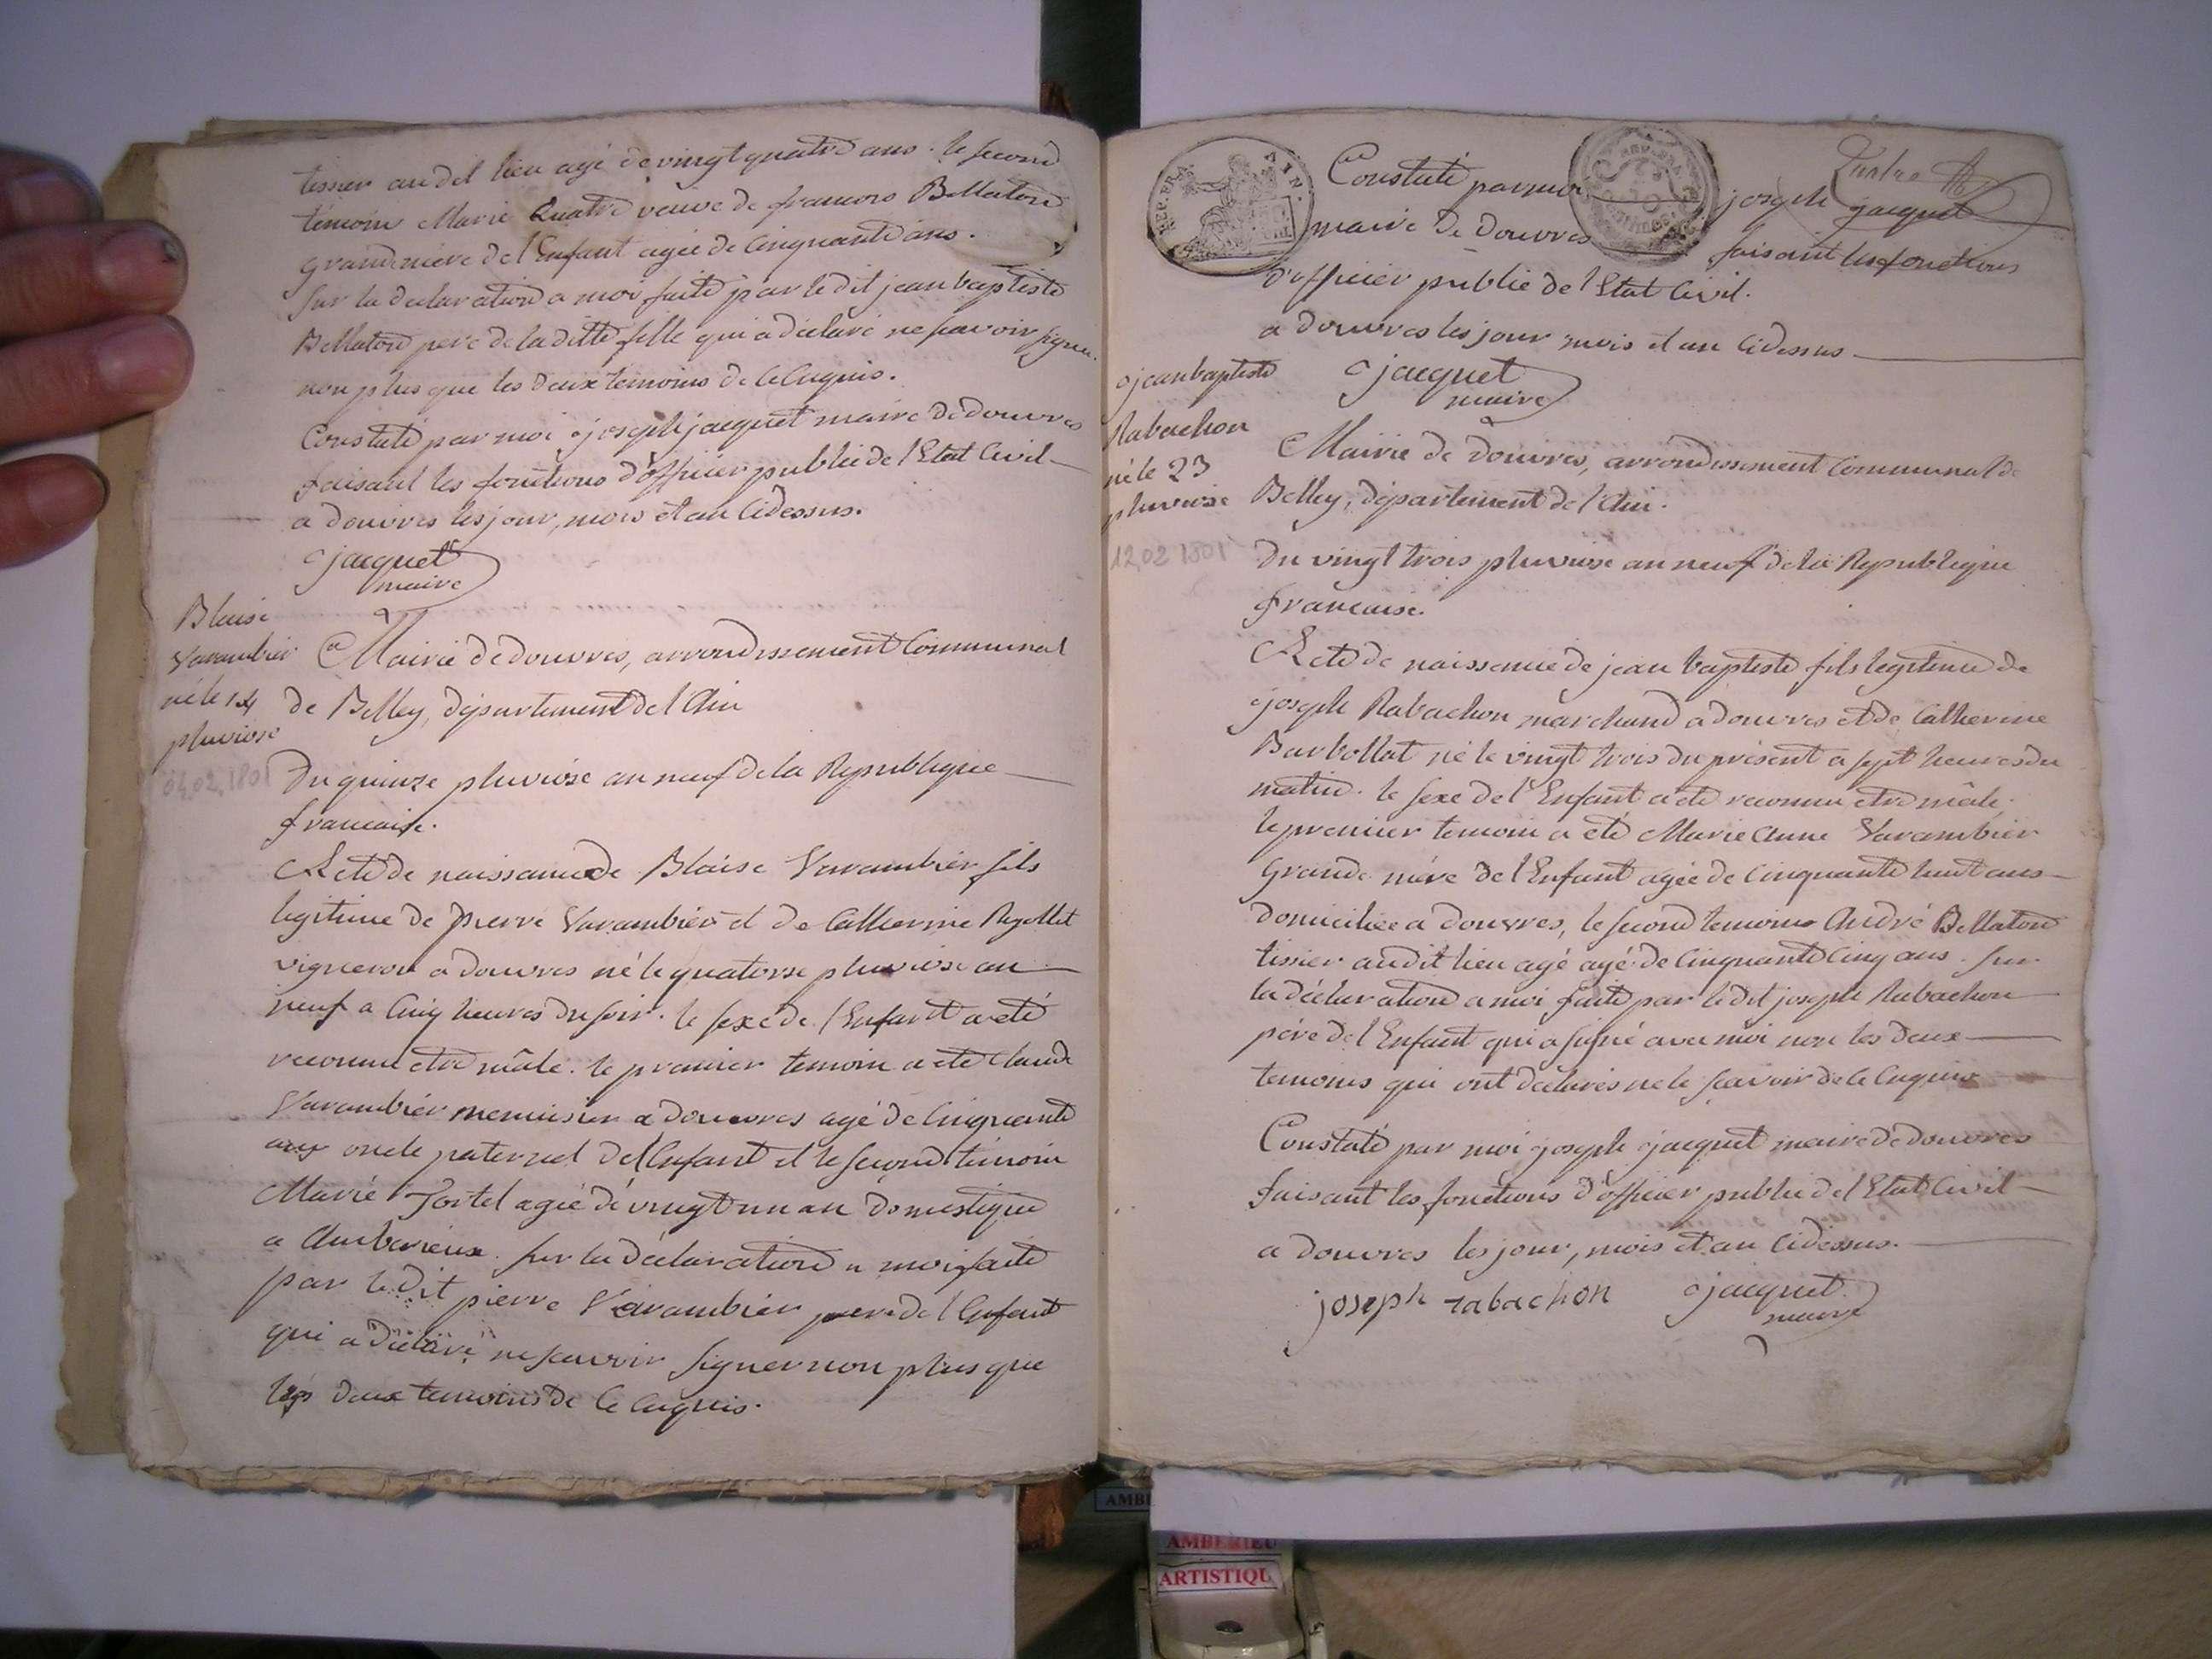 tissier audit lieu agé de vingt quatre ans. le second
temoin Marie Quatre veuve de francois Bellaton
grandmère de l'Enfant agée de Cinquante ans.
sur la declaration a moi faite par le dit jean baptiste
Bellaton pere de la ditte fille qui a déclaré ne scavoir signer
non plus que les deux temoins de ce Enquis.
Constaté par moi joseph jacquet maire de douvres
faisant les fonctions d'officier public de l'Etat Civil
a douvres les jour, mois et an Cidessus.
jacquet
maire
Blaise
Varambier
né le 14
pluviose
04.02.1801
Mairie de douvres, arrondissement Communal
de Belley, département de l'Ain
Du quinze pluviôse an neuf de la République
francaise.
Acte de naissance de Blaise Varambier fils
legitime de pierre Varambier et de Catherine Reyollet
vigneron a douvres né le quatorse pluviose an
neuf a Cinq heures du soir. le sexe de l'Enfant a eté
reconnu etre mâle. le premier temoin a eté Claude
Varambier menuisier a douvres agé de Cinquante
ans oncle paternel de l'Enfant et le second temoin
Marie Tortel agée de vingt un an domestique
a Amberieux. sur la déclaration a moi faite
par ledit pierre Varambier pere de l'Enfant
qui a déclaré ne scavoir signer non plus que
les deux temoins de ce Enquis.
REP. FRA. AIN.
REP. FRA.
Constaté par moi joseph jacquet
maire de douvres faisant les fonctions
d'officier public de l'Etat Civil.
a douvres les jour mois et an Cidessus
jacquet
maire
jean baptiste
Rabachon
né le 23
pluviose
12.02 1801
Mairie de douvres, arrondissement Communal de
Belley, département de l'Ain.
Du vingt trois pluviose an neuf de la République
francaise.
Acte de naissance de jean baptiste fils legitime de
joseph Rabachon marchand a douvres et de Catherine
Barbollat né le vingt trois du présent a sept heures du
matin. le sexe de l'Enfant a eté reconnu etre mâle.
le premier temoin a été Marie Anne Varambier
Grande mère de l'Enfant agée de Cinquante huit ans
domiciliée a douvres, le second temoins André Bellaton
tissier audit lieu agé agé de Cinquante Cinq ans. sur
la déclaration a moi faite par le dit joseph Rabachon
pére de l'Enfant qui a signé avec moi non les deux
temoins qui ont déclarés ne le scavoir de ce Enquis
Constaté par moi joseph jacquet maire de douvres
faisant les fonctions d'officier public de l'Etat Civil
a douvres les jour, mois et an Cidessus.
joseph rabachon jacquet
maire
AMBE
AMBERIEU
ARTISTIQU